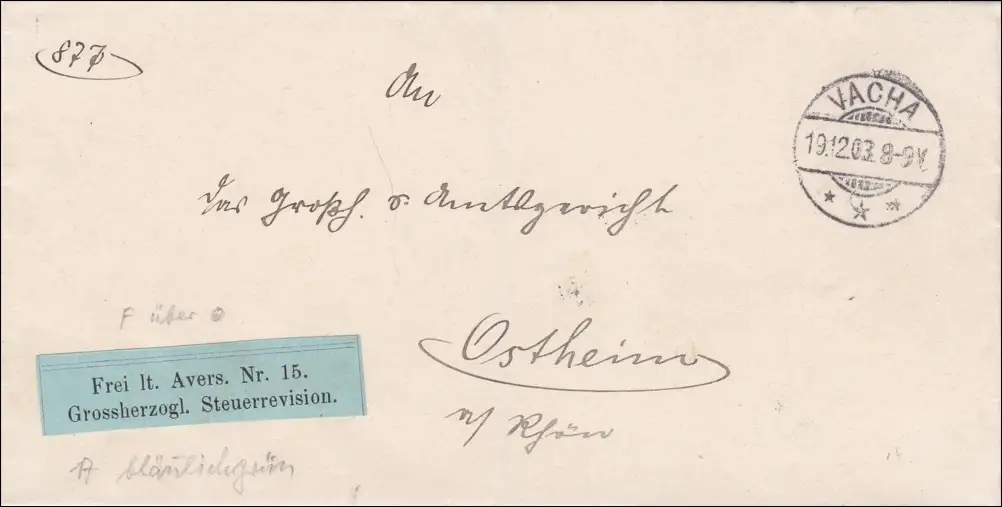 877
An
VACHA
19.12.03. 8-9V.
das Großh. S. Amtsgericht
F über
Ostheim
Frei lt. Avers. Nr. 15.
Grossherzogl. Steuerrevision.
a/ Rhön
A bläulichgrün